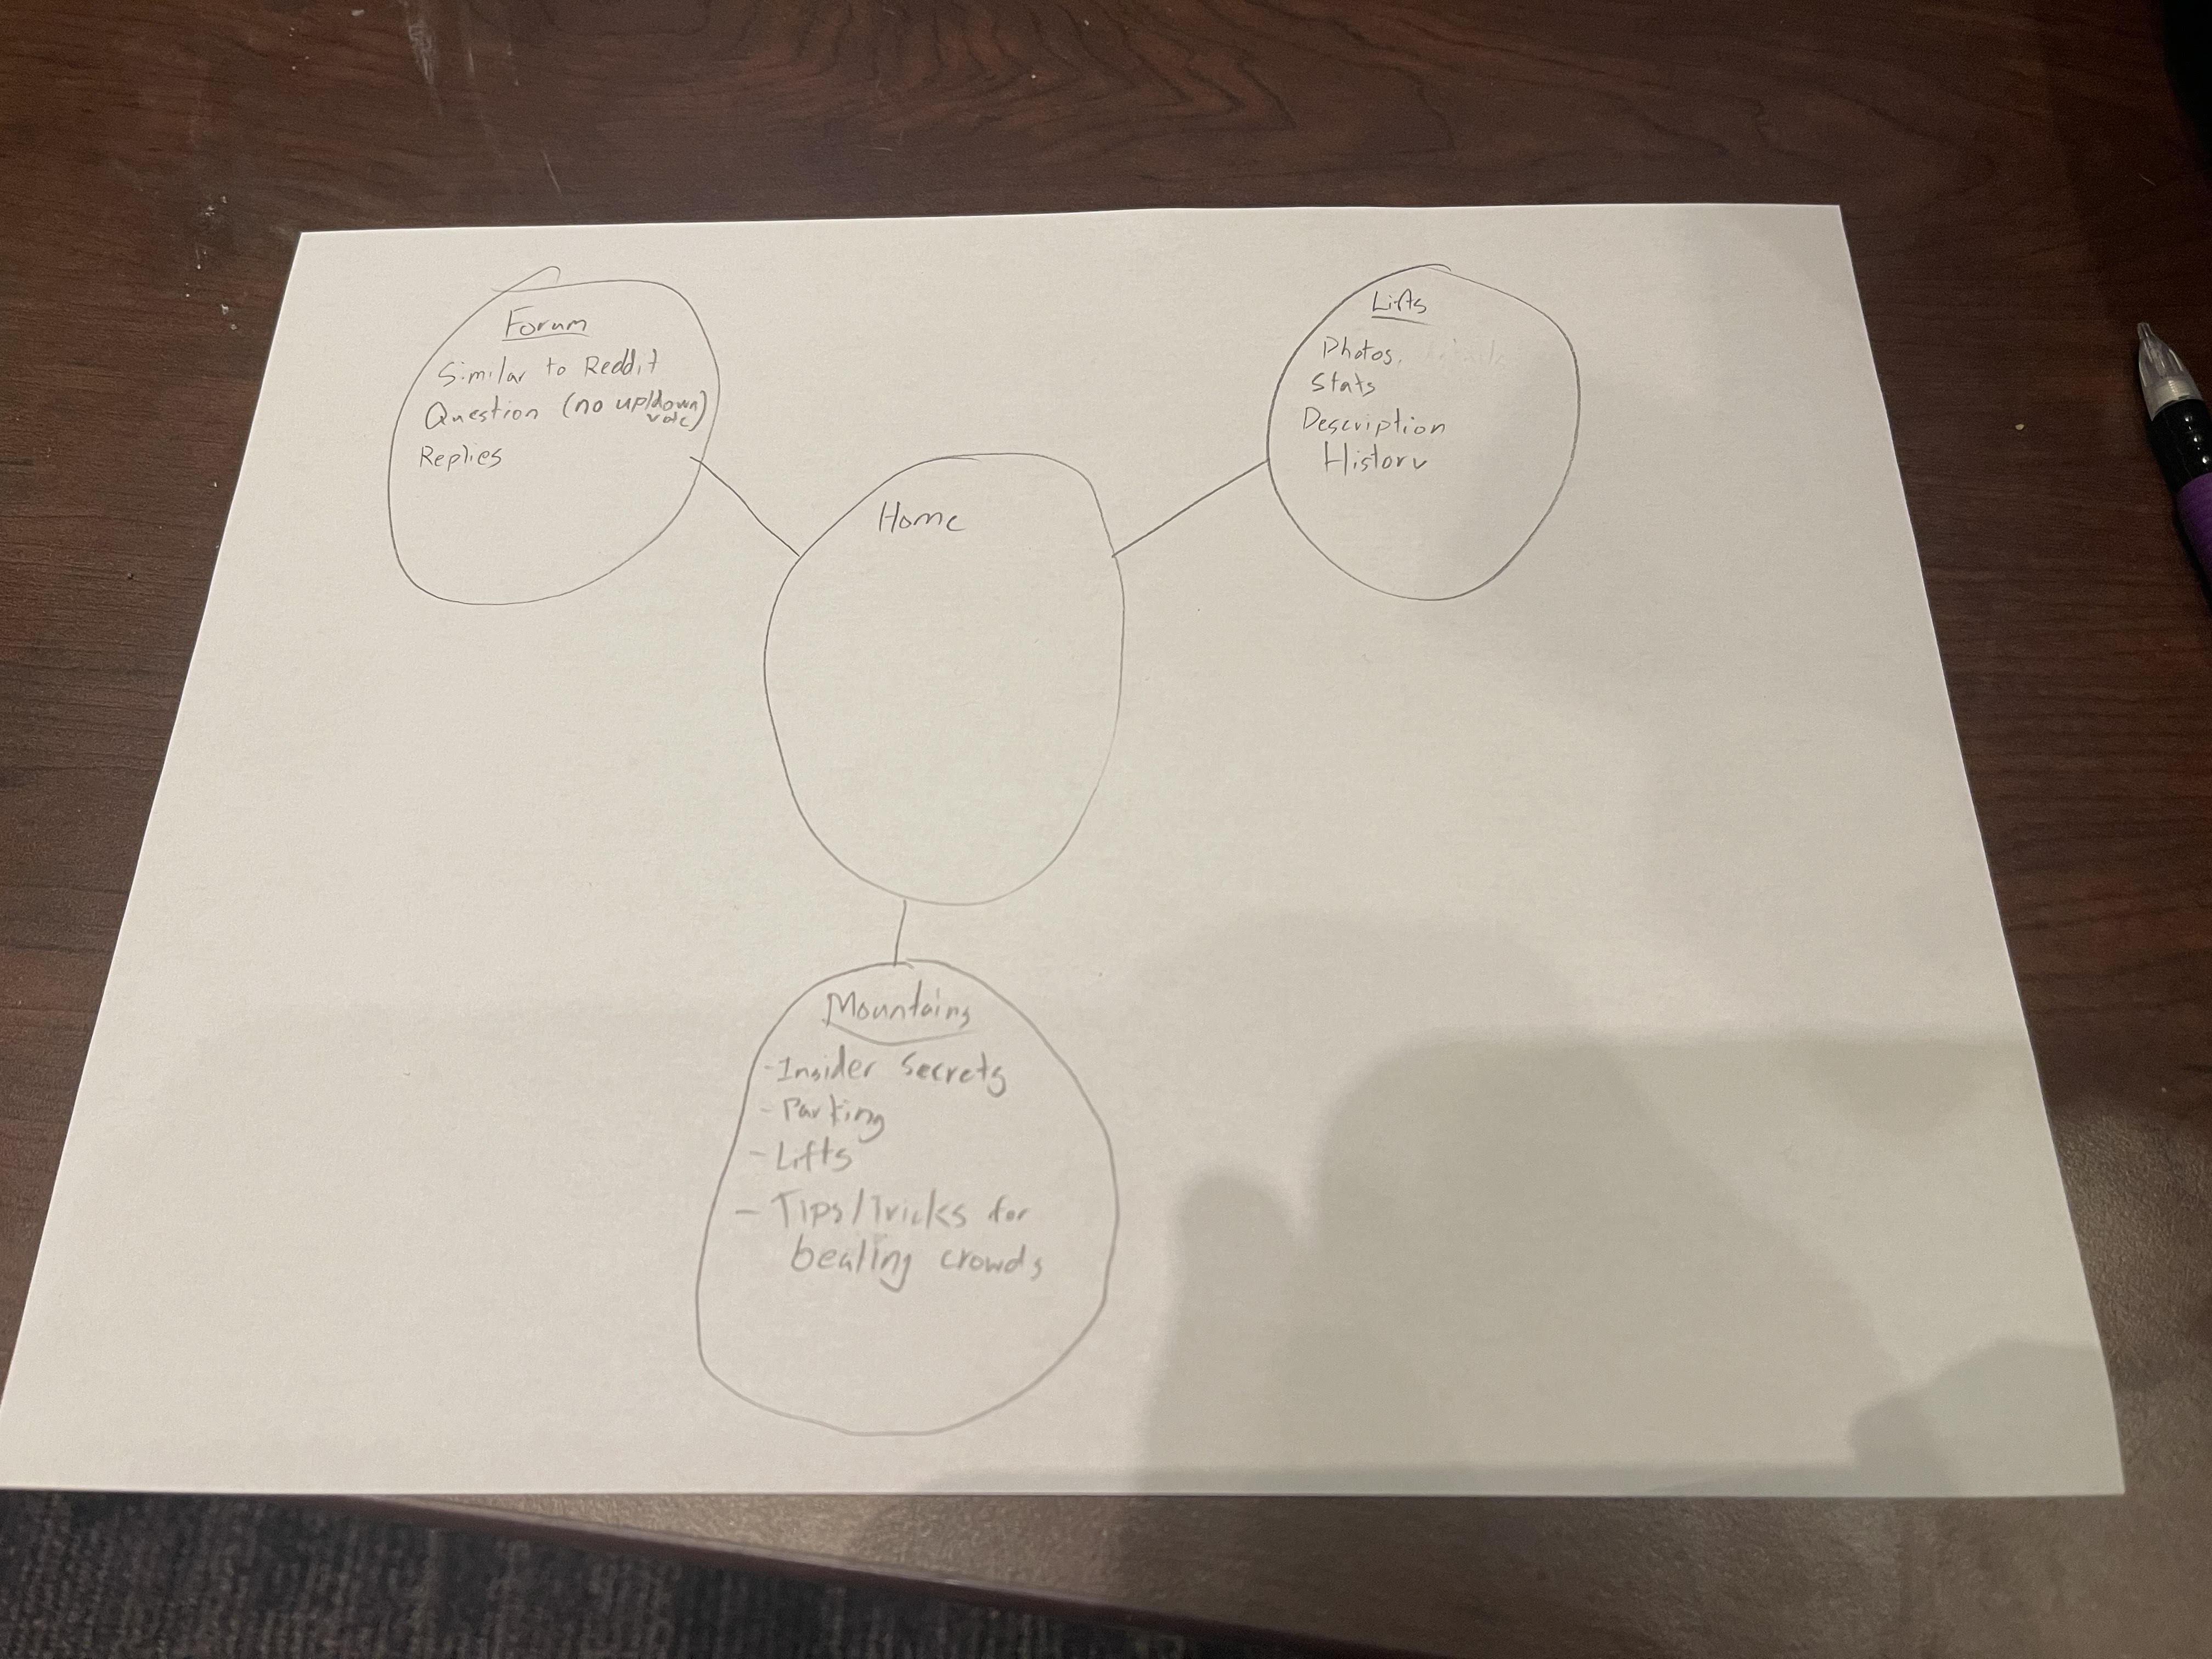 Forum
Similar to Reddit
Question (no up/down
vote)
Replies
Lifts
Photos,
Stats
Description
History
Home
Mountains
-Insider secrets
- Parking
- Lifts
- Tips/Tricks for
beating crowds